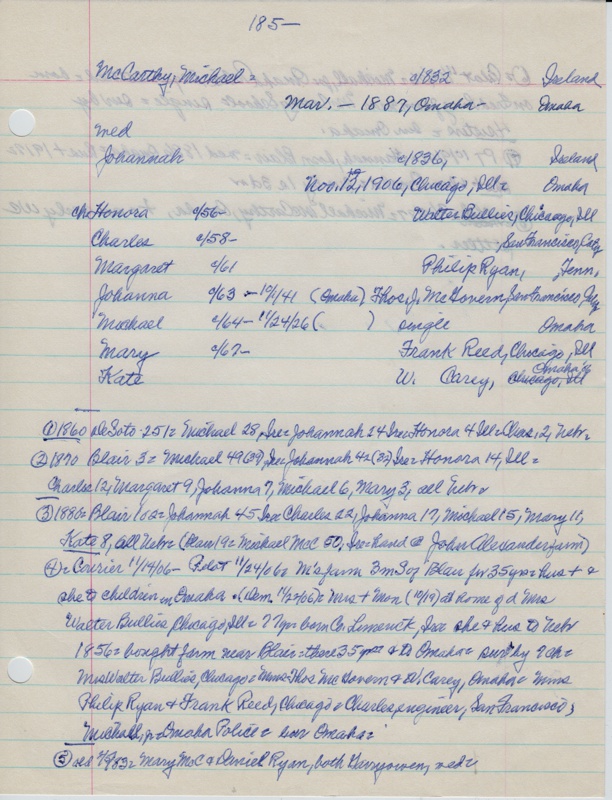 185—
McCarthy, Michael = c/1832 Ireland
Mar. — 1887, Omaha— Omaha
med
Johannah c/1836, Ireland
Nov. 12, 1906, Chicago, Ill= Omaha
ch. Honora c/56— Walter Bullis, Chicago, Ill
Charles c/58— San Francisco,
Margaret c/61 Philip Ryan, Tenn,
Johanna c/63 — 10/1/41 (Omaha) Thos. J. McGovern, San Francisco,
Michael c/64— 11/24/26 ( ) single Omaha
Mary c/67— Frank Reed, Chicago, Ill
Kate W. Carey, Omaha
① 1860 DeSoto-251= Michael 28, Ire= Johannah 24 Ire= Honora 4 Ill= Chas, 2, Nebr=
② 1870 Blair 3= Michael 49(39), Ire= Johannah 42(32) Ire= Honora 14, Ill=
Charles 12, Margaret 9, Johanna 7, Michael 6, Mary 3, all Nebr
③ 1880= Blair 102= Johannah 45 Ire Charles 22, Johanna 17, Michael 15, Mary 11,
Kate 8, all Nebr= (Blair 19= Michael McC 50, Ire= hand @ John Alexander farm)
④= Courier 11/14/06— Pilot 11/24/06= farm 3m S of Blair for 35 yrs= hus +
she to children in Omaha= (Dem. 11/22/06)= Mrs + Mon (11/19) at home of d Mrs
Walter Bullis, Chicago, Ill= 77 yrs= born Co. Limerick, Ire she & hus to Nebr
1856= bought farm near Blair= there 35 yrs & to Omaha= surv by 7 ch=
Mrs Walter Bullis, Chicago= Mmes Thos McGovern & W Carey, Omaha= Mmes
Philip Ryan & Frank Reed, Chicago= Charles, engineer, San Francisco;
Michael, Omaha Police= bur Omaha=
⑤ 1883= Mary McC & Daniel Ryan, both Garryowen, wed=